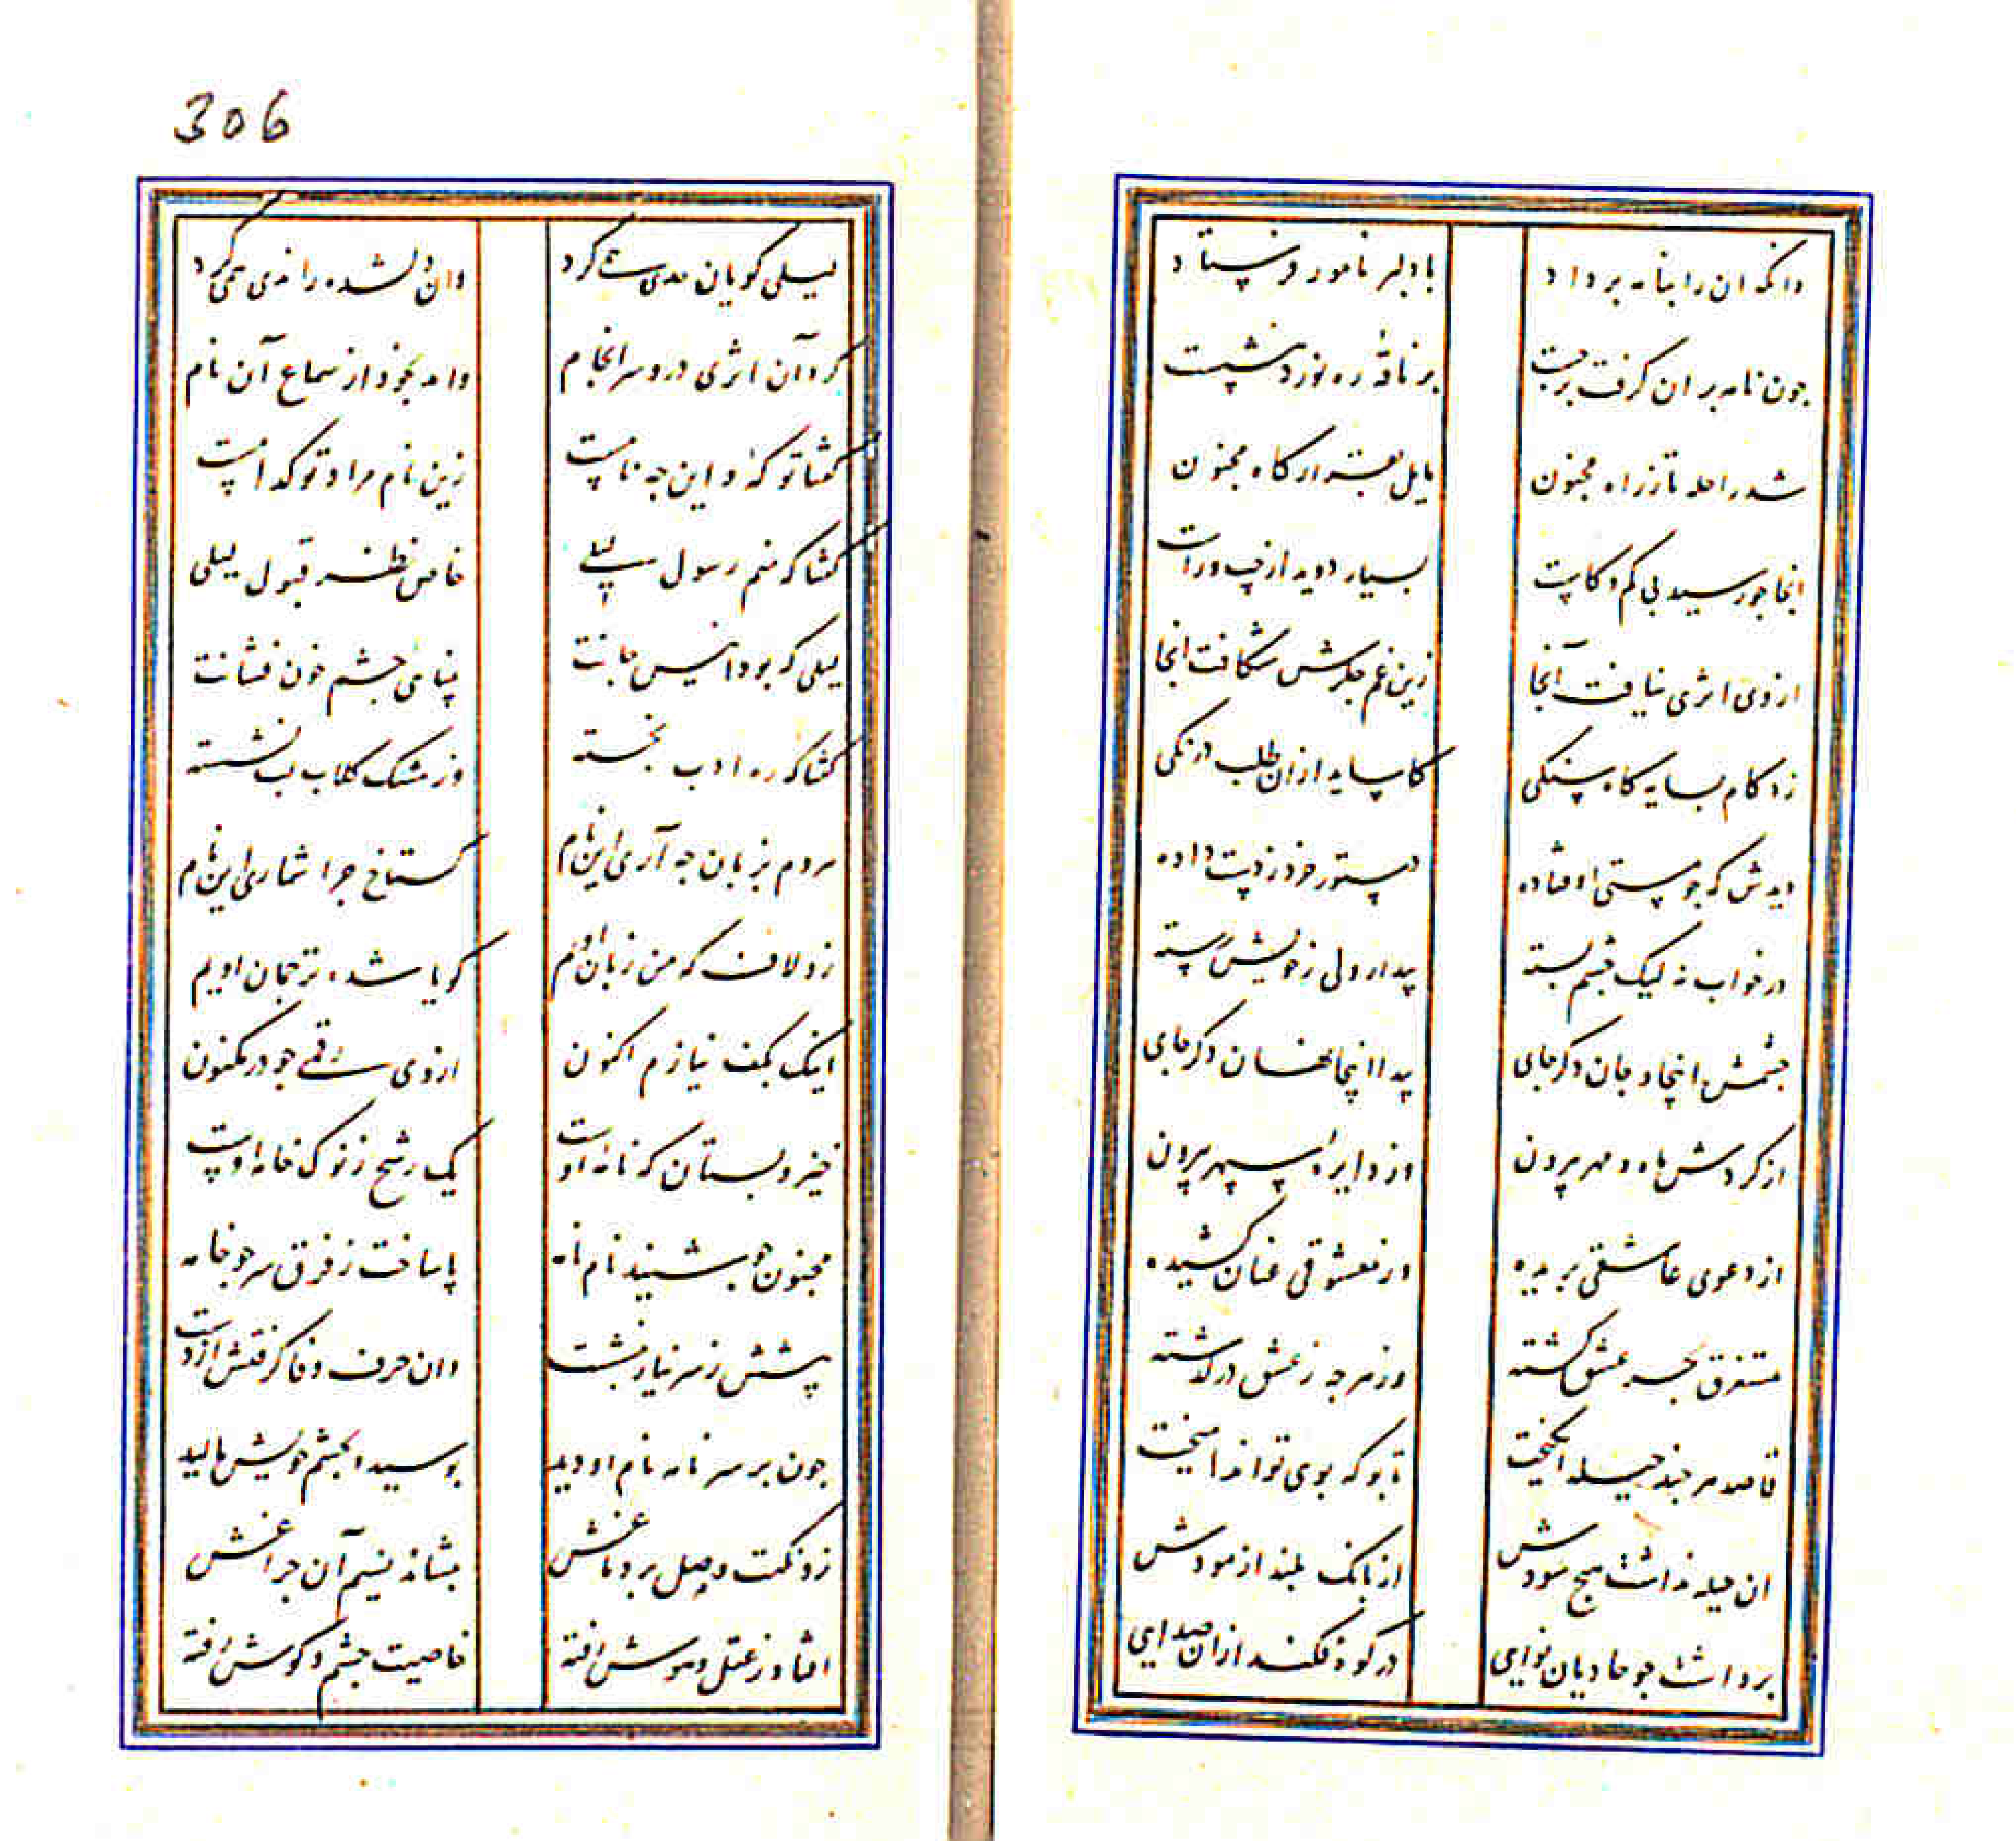 306
وانکه ان را بنامه بر داد با دلبر نامور فرستاد
جون نامه بر ان گرفت برجست بر ناقهٔ ره نورد بنشست
شد راحله تاز راه مجنون یابل بقرارگاه مجنون
انجا جو رسید بی کم و کاست بسیار دوید از چپ و راست
از وی اثری نیافت آنجا زین غم جکرش شکافت انجا
زد کام بسایه کاه سنکی کاساید از ان طلب درنکی
دیدش که جو مستی اوفتاده دستور خرد ز دست داده
در خواب نه لیک چشم بسته بیدار ولی ز خویش رسته
چشمش اینجا و جان دکر جای پیدا اینجا نهان دکر جای
از کردش ماه و مهر بیرون وز دایرهٔ سپهر بیرون
از دعوی عاشقی بریده وز معشوقی عنان کشیده
مستغرق بحر عشق کشته وز هر جه ز عشق درکذشته
قاصد هر چند حیله انکیخت تا بو که بوی تواند امیخت
ان حیله نداشت هیج سودش از بانک بلند ازمودش
برداشت جو حادیان نوایی در کوه فکند از ان صدایی
لیلی کویان حدی همی کرد وان دلشده را ندی همی کرد
کرد آن اثری درو سرانجام وامد بخود از سماع آن نام
کفتا تو کهٔ و این جه نامست زین نام مراد تو کدامست
کفتا که منم رسول لیلی خاص نظر قبول لیلی
لیلی که بود انیس جانت بینایی چشم خون فشانت
کفتا که ره ادب نجسته وز مشک کلاب لب نشسته
هر دم بزبان جه آری این نام کستاخ جرا شماری این نام
زد لاف که من زبان اویم کویا شده ترجمان اویم
اینک بکف نیازم اکنون از وی رقمی جو در مکنون
خیز و بستان که نامهٔ اوست یک رشح ز نوک خامهٔ اوست
مجنون جو شنید نام نامه پا ساخت ز فرق سر جو خامه
پیشش ز سر نیاز بنشست وان حرف وفا کرفتش از دست
جون بر سر نامه نام او دید بوسید و بچشم خویش مالید
زد نکهت وصل بر دماغش بنشاند نسیم آن جراغش
افتاد ز عقل و هوش رفته خاصیت جشم و کوش رفته